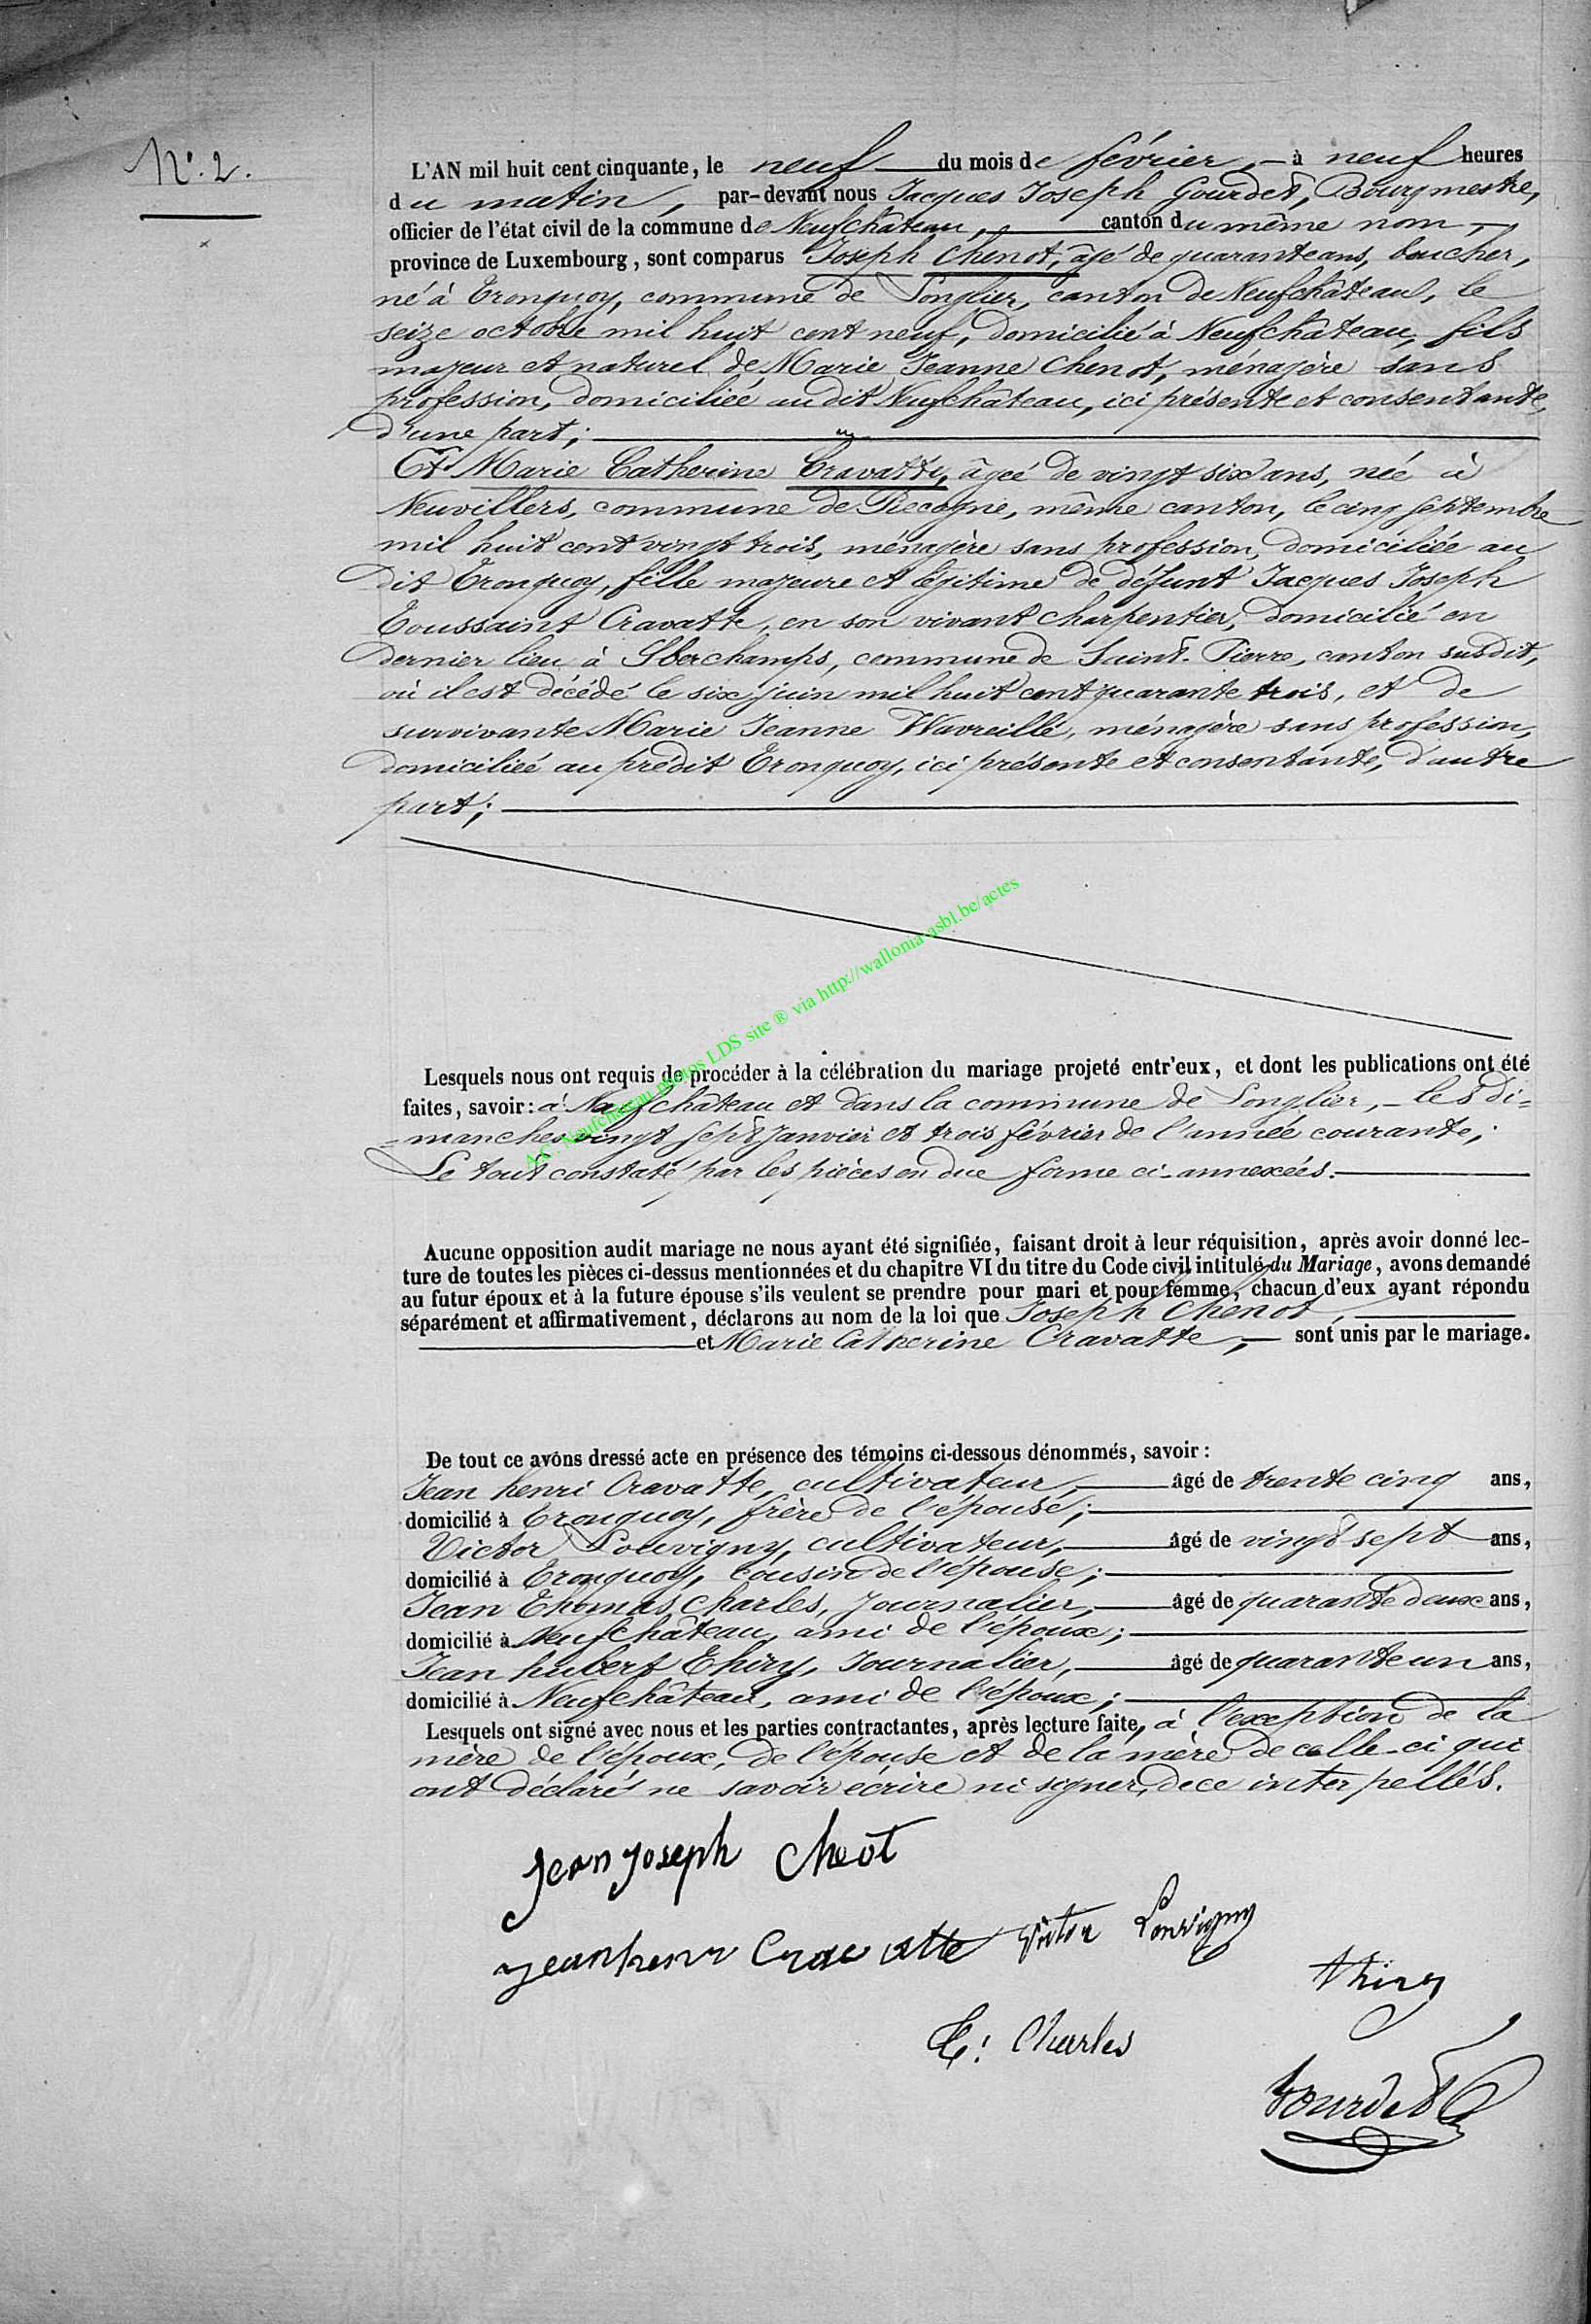 N.° 2.
L'AN mil huit cent cinquante, le neuf du mois de février, à neuf heures
du matin, par-devant nous Jacques Joseph Gourdet, Bourgmestre,
officier de l'état civil de la commune de Neufchâteau, canton du même nom,
province de Luxembourg, sont comparus Joseph Chenot, âgé de quarante ans, boucher,
né à Tronquoy, commune de Longlier, canton de Neufchâteau, le
seize octobre mil huit cent neuf, domicilié à Neufchâteau, fils
majeur et naturel de Marie Jeanne Chenot, ménagère sans
profession, domiciliée au dit Neufchâteau, ici présente et consentante,
d'une part;
Et Marie Catherine Cravatte, âgeé de vingt six ans, née à
Neuvillers, commune de Recogne, même canton, le cinq septembre
mil huit cent vingt trois, ménagère sans profession, domiciliée au
dit Tronquoy, fille majeure et légitime de défunt Jacques Joseph
Toussaint Cravatte, en son vivant charpentier, domicilié en
dernier lieu à Sberchamps, commune de Saint-Pierre, canton susdit,
où il est décédé le six juin mil huit cent quarante trois, et de
survivante Marie Jeanne Wavreille, ménagère sans profession,
domiciliée au prédit Tronquoy, ici présente et consentante, d'autre
part;
Lesquels nous ont requis de procéder à la célébration du mariage projeté entr'eux, et dont les publications ont été
faites, savoir: à Neufchâteau et dans la commune de Longlier, les di=
=manches vingt sept janvier et trois février de l'année courante;
Le tout constaté par les pièces en due forme ci-annexées.
A.C. Neufchâteau photos LDS site ® via http://wallonia-asbl.be/actes
Aucune opposition audit mariage ne nous ayant été signifiée, faisant droit à leur réquisition, après avoir donné lec-
ture de toutes les pièces ci-dessus mentionnées et du chapitre VI du titre du Code civil intitulé du Mariage, avons demandé
au futur époux et à la future épouse s'ils veulent se prendre pour mari et pour femme, chacun d'eux ayant répondu
séparément et affirmativement, déclarons au nom de la loi que Joseph Chenot,
et Marie Catherine Cravatte, sont unis par le mariage.
De tout ce avons dressé acte en présence des témoins ci-dessous dénommés, savoir:
Jean henri Cravatte, cultivateur, âgé de trente cinq ans,
domicilié à Tronquoy, frère de l'épouse;
Victor Louvigny, cultivateur, âgé de vingt sept ans,
domicilié à Tronquoy, cousin de l'épouse;
Jean Thomas Charles, Journalier, âgé de quarante deux ans,
domicilié à Neufchâteau, ami de l'époux;
Jean hubert Thiry, Journalier, âgé de quarante un ans,
domicilié à Neufchâteau, ami de l'époux;
Lesquels ont signé avec nous et les parties contractantes, après lecture faite, à l'exception de la
mère de l'époux, de l'épouse et de la mère de celle-ci qui
ont déclaré ne savoir écrire ni signer, de ce interpellés.
Jean Joseph Cheot
jean henri Cravatte Victor Louvigny
thiry
T: Charles
Gourdet